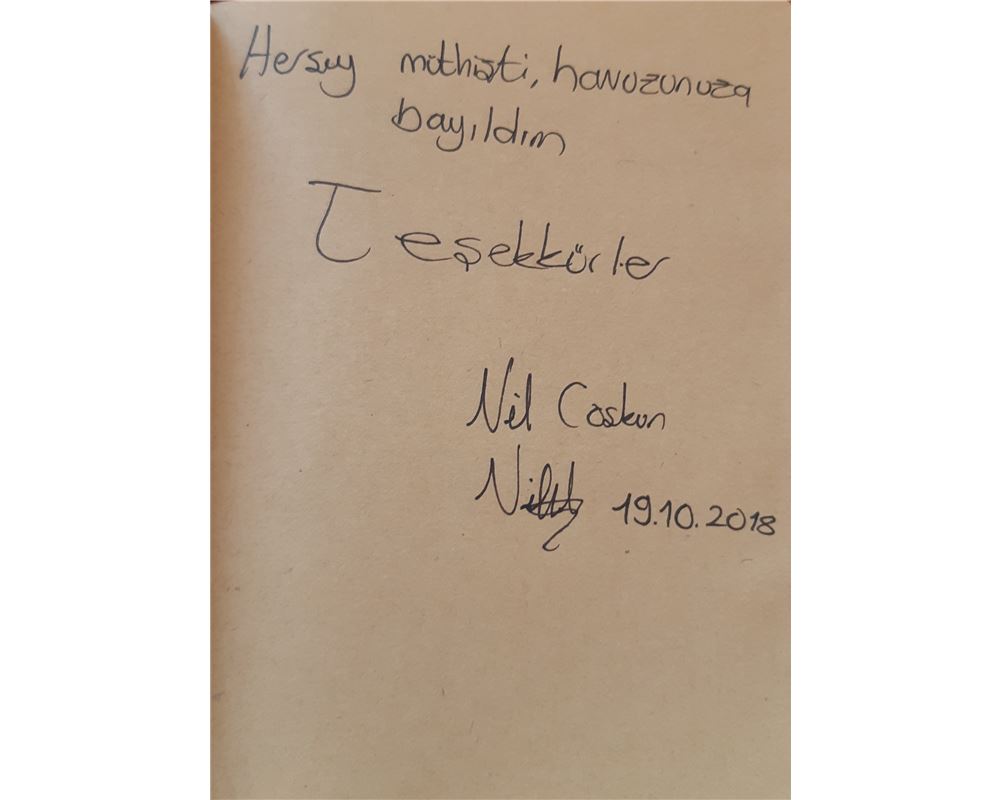 Hersey müthişti, havuzunuza
bayıldım
Teşekkürler
Nil Coskun
19.10.2018